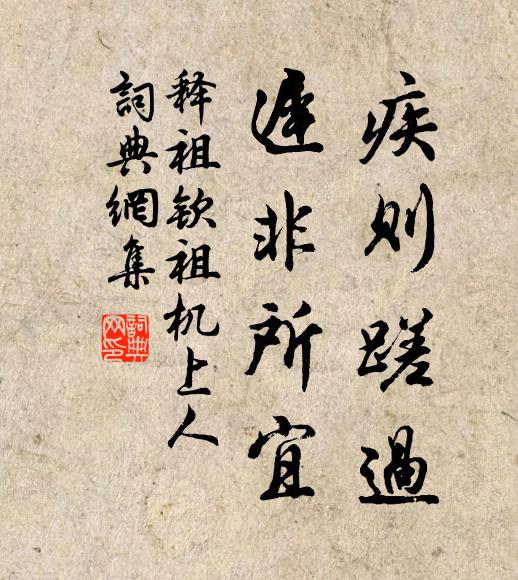 疾则蹉過
遲非所宜
释祖钦祖机上人
詞典網集
詞典网印